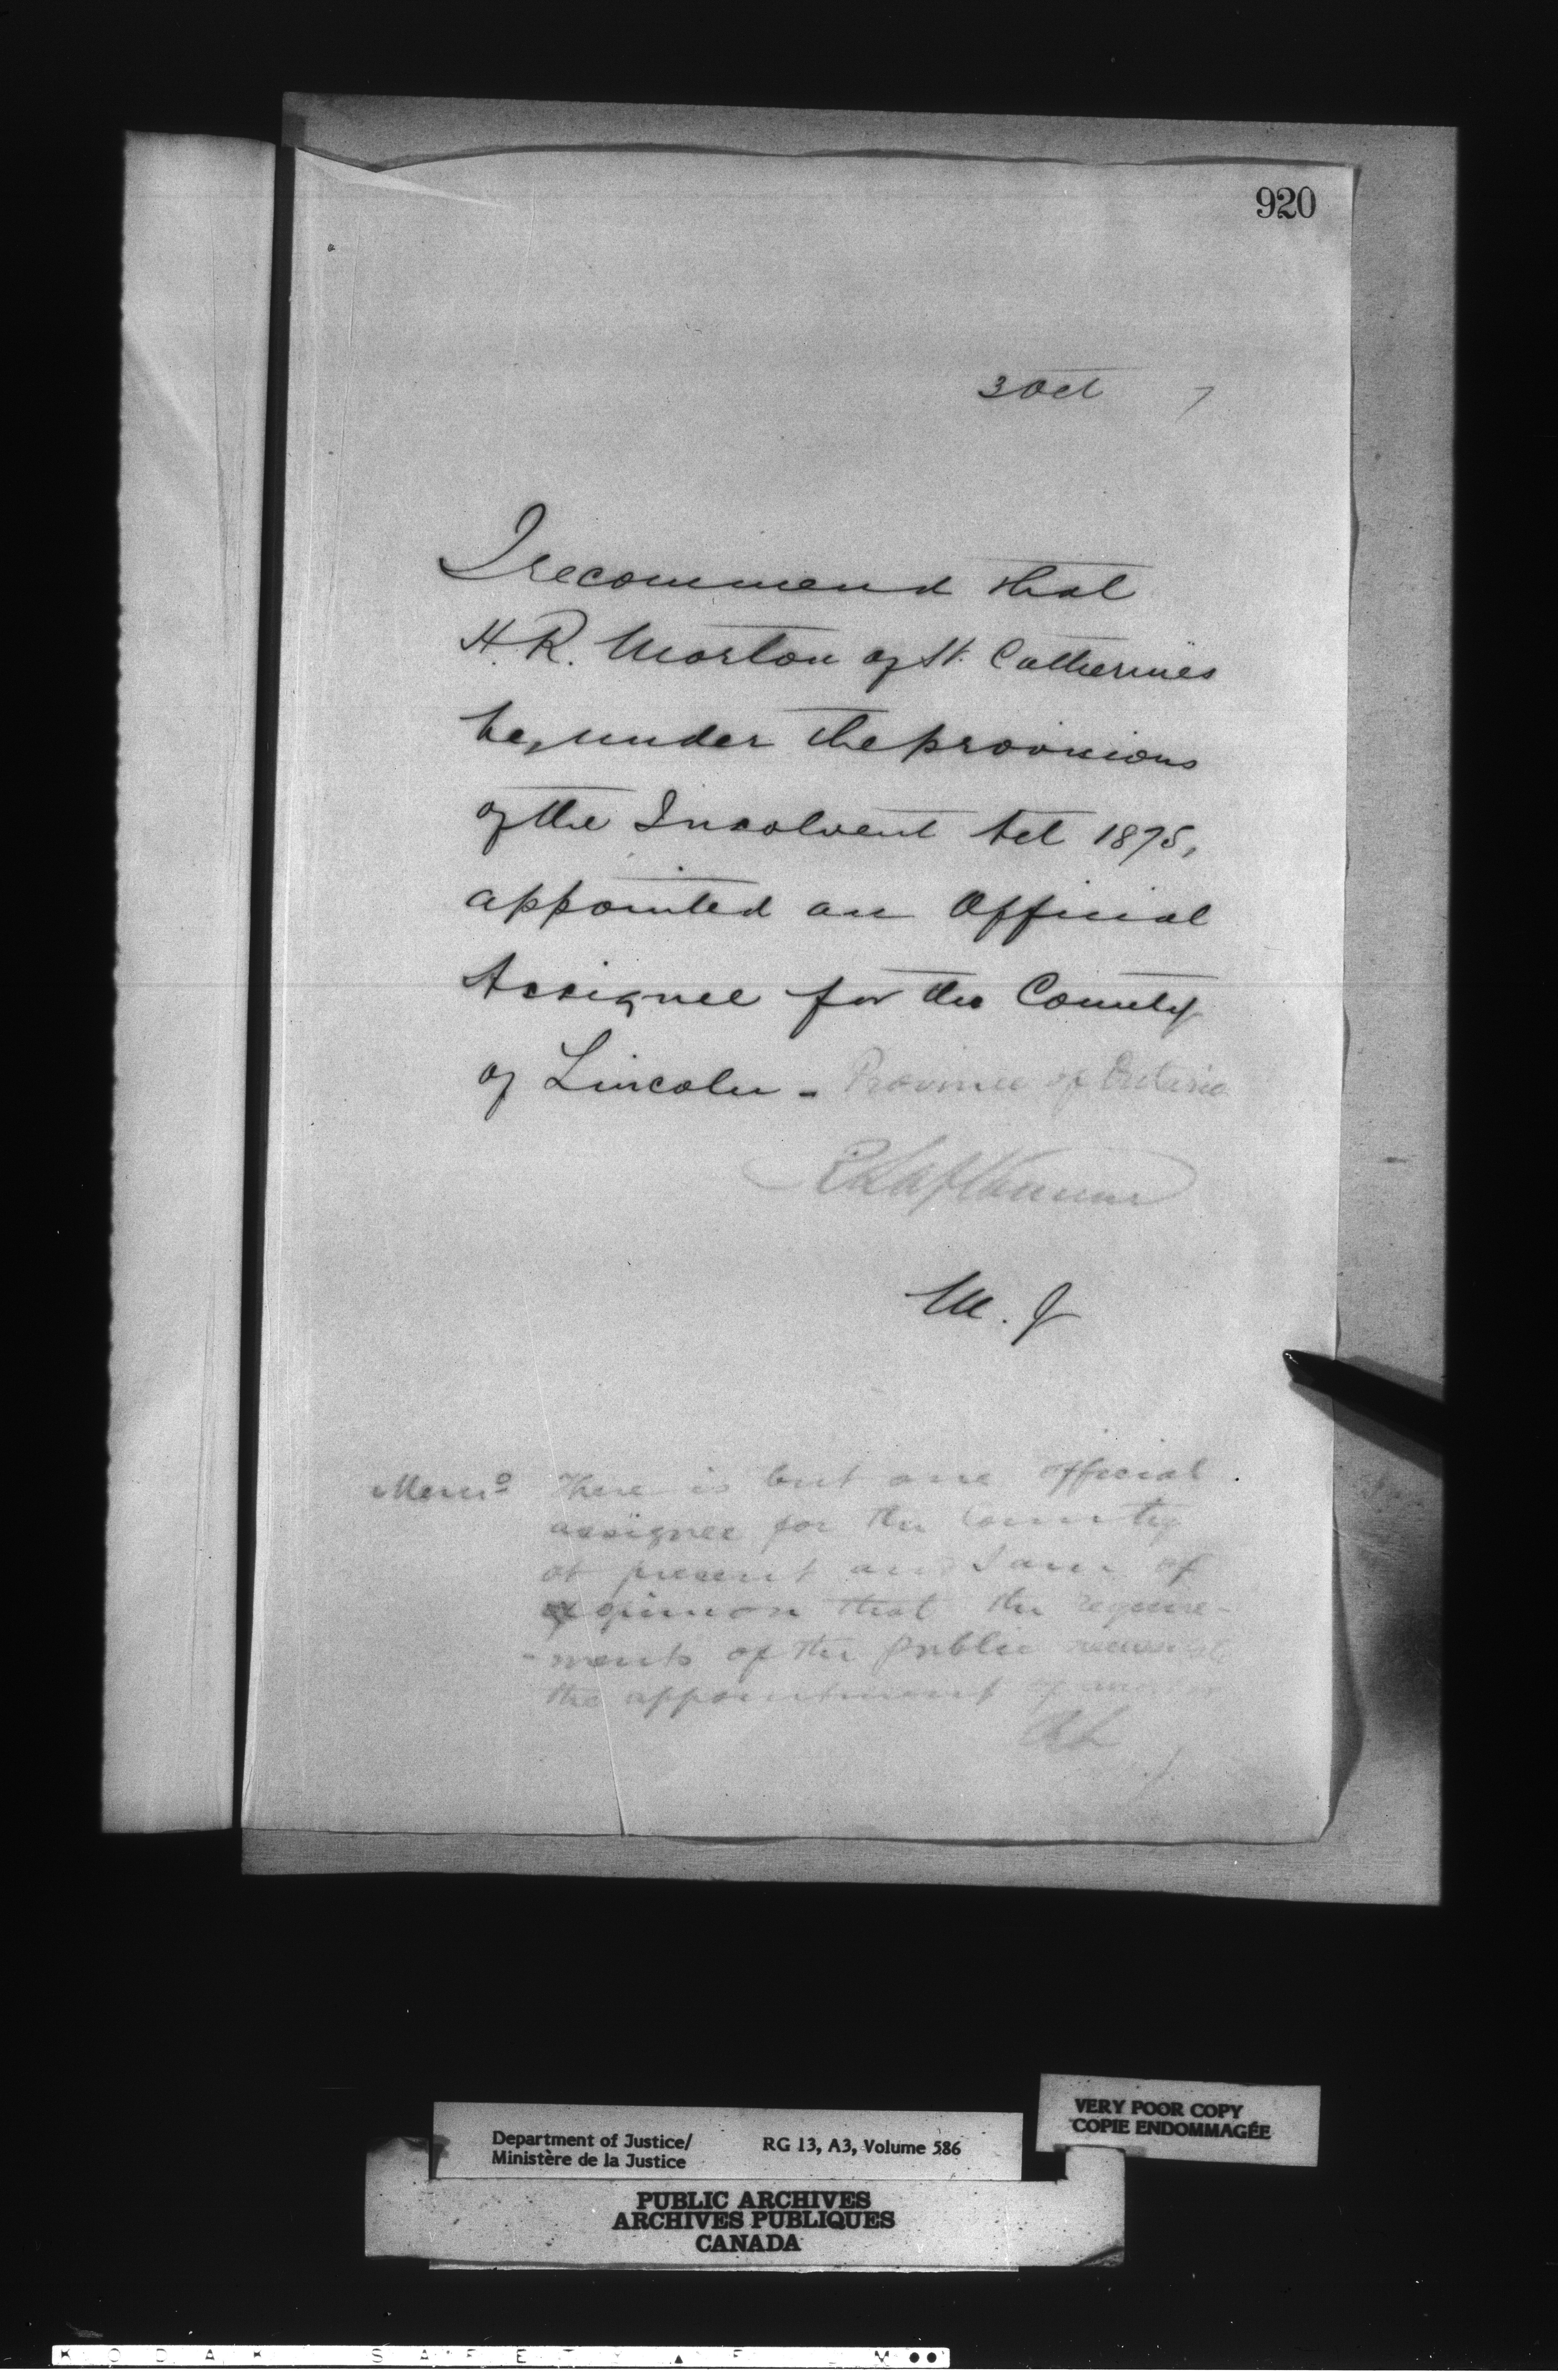 920
3 Oct 7
I recommend that
H. R. Morton of St. Catherines
be, under the provisions
of the Insolvent Act 1875,
appointed an Official
Assignee for the County
of Lincoln - Province of Ontario
R Laflamme
M. J
Memo There is but one official
assignee for the County
at present and I am of
opinion that the require-
-ments of the public necessitate
the appointment of another
RL
J.
Department of Justice/
Ministère de la Justice
RG 13, A3, Volume 586
VERY POOR COPY
COPIE ENDOMMAGÉE
PUBLIC ARCHIVES
ARCHIVES PUBLIQUES
CANADA